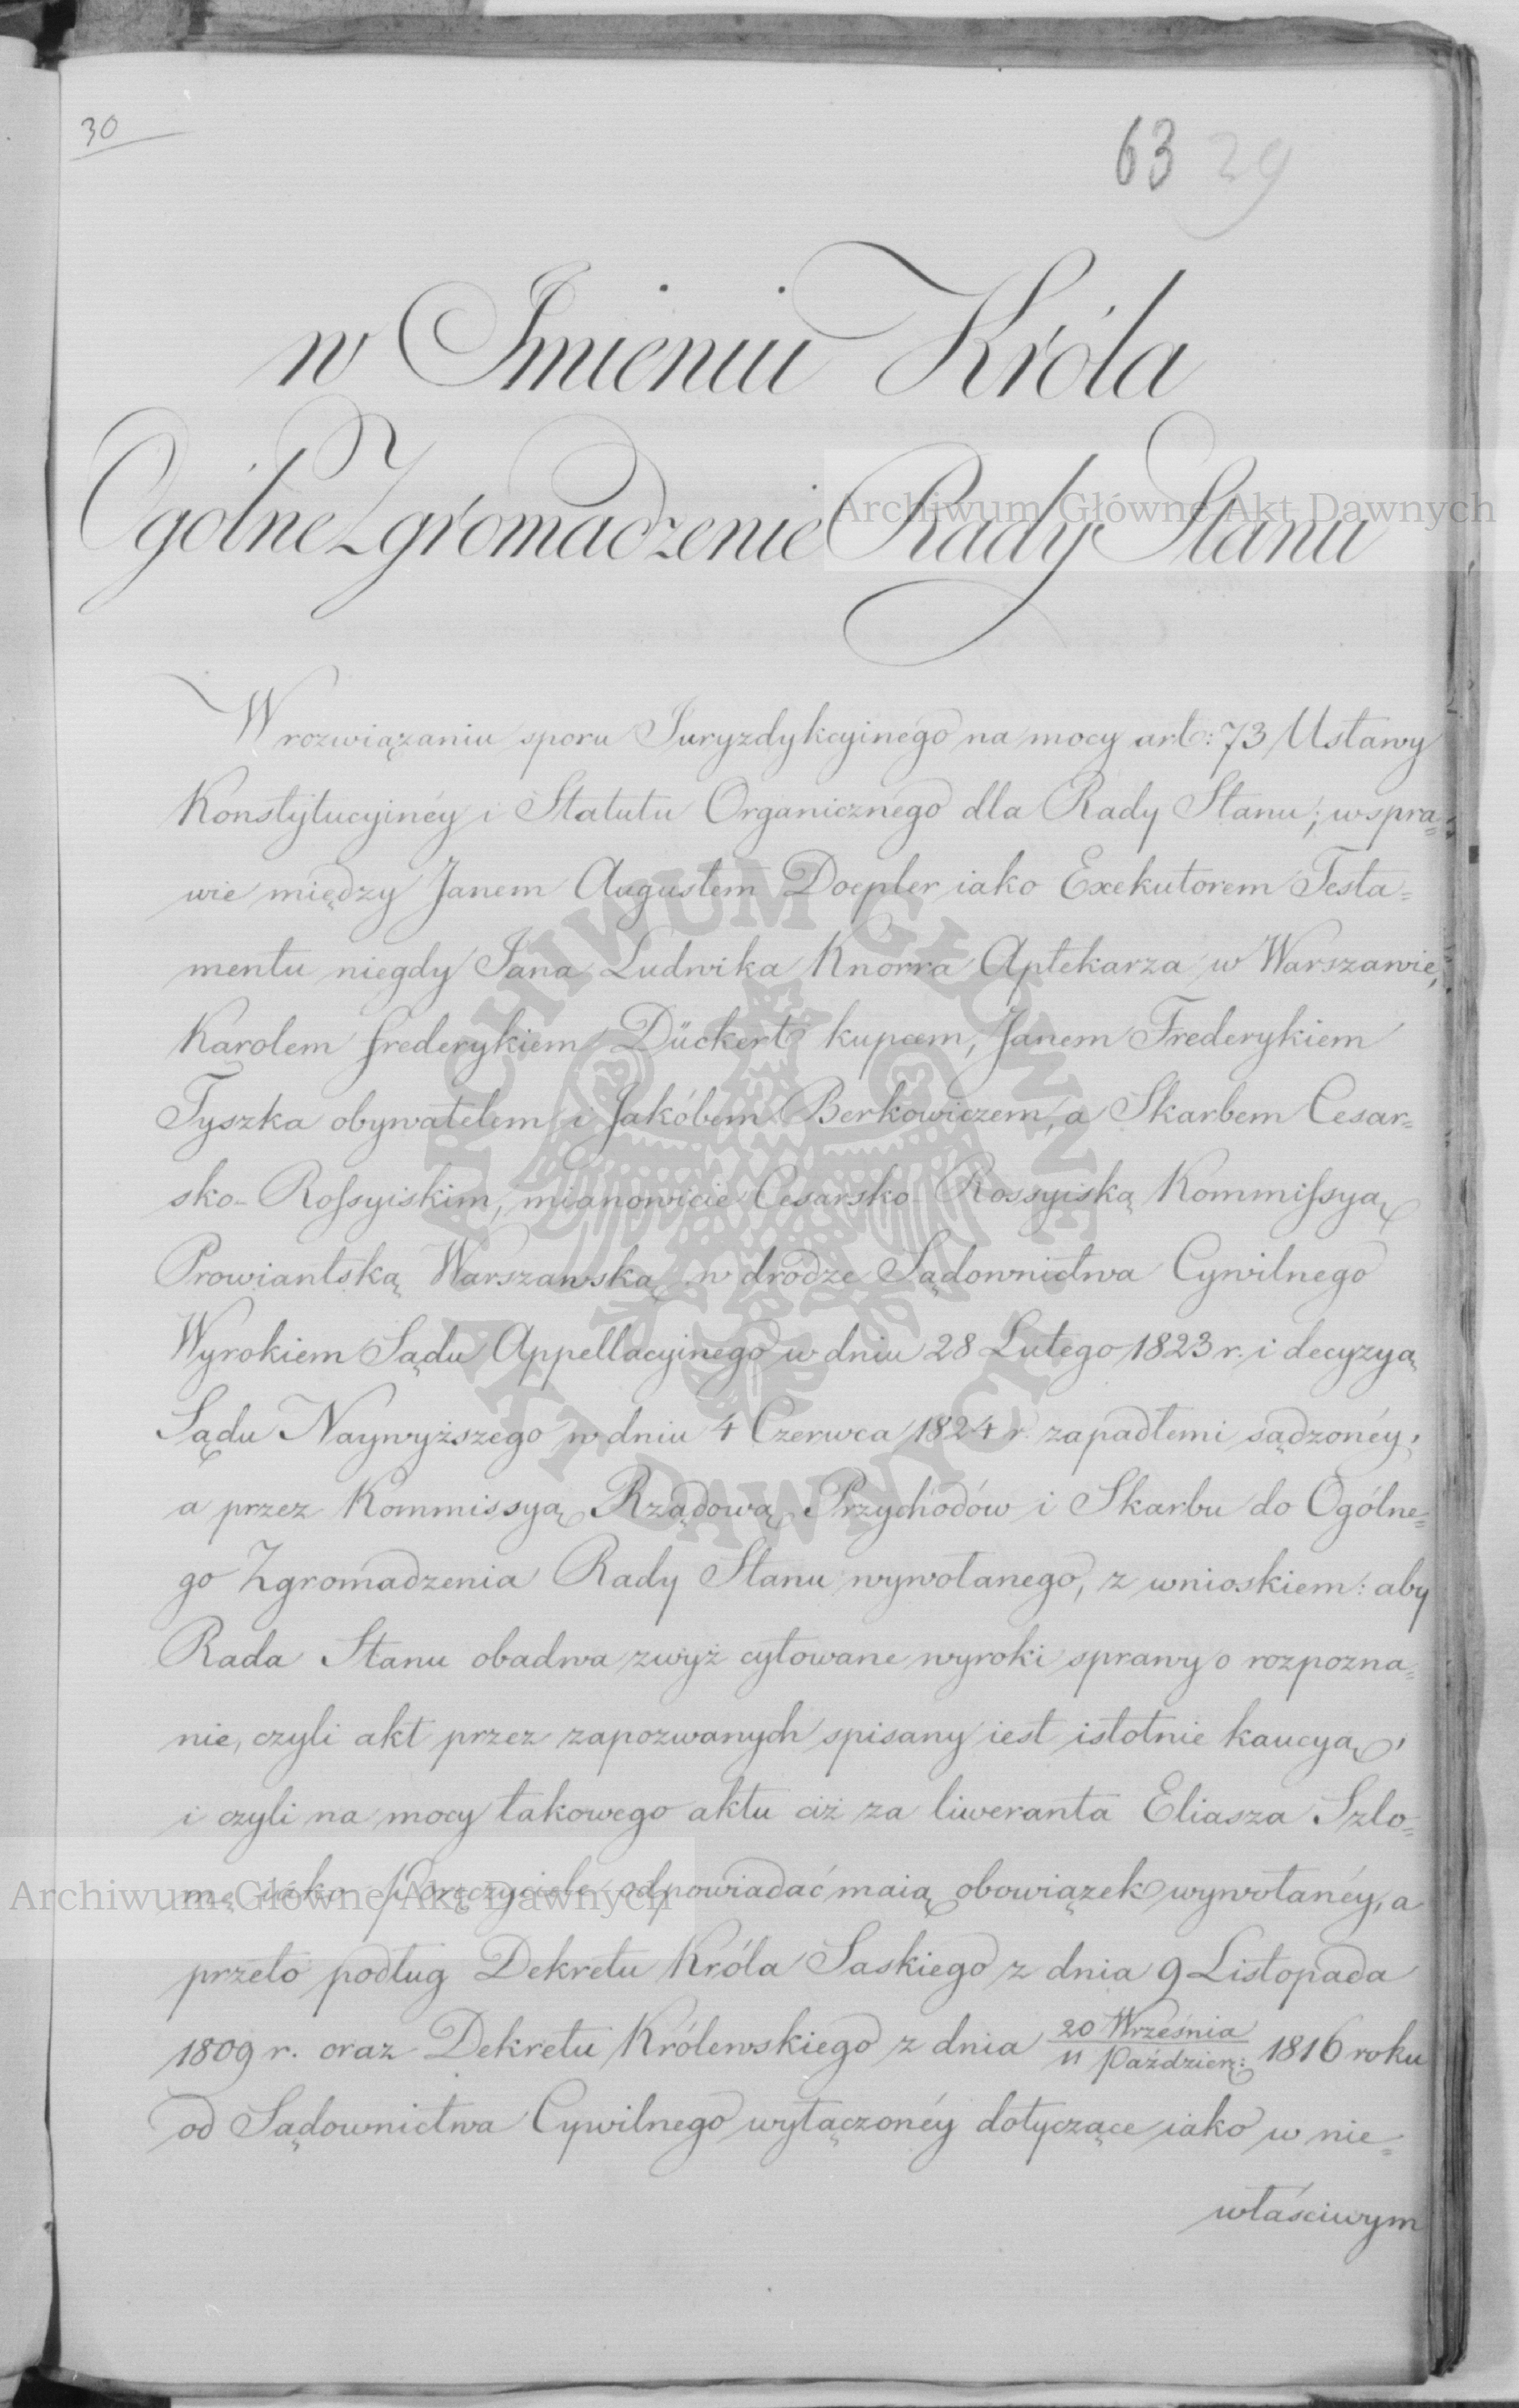 30
63 29
w Imieniu Króla
Ogólne Zgromadzenie Rady Stanu
W rozwiązaniu sporu Juryzdykcyinego na mocy art: 73 Ustawy
Konstytucyinéy i Statutu Organicznego dla Rady Stanu; w spra=
wie między Janem Augustem Doepler iako Exekutorem Testa=
mentu niegdy Jana Ludwika Knorra Aptekarza w Warszawie,
Karolem Frederykiem Dückert kupcem, Janem Frederykiem
Tyszka obywatelem i Jakóbem Berkowiczem, a Skarbem Cesar=
sko-Rossyiskim, mianowicie Cesarsko-Rossyiską Kommissyą
Prowiantską Warszawską w drodze Sądownictwa Cywilnego
Wyrokiem Sądu Appellacyinego w dniu 28 Lutego 1823 r. i decyzyą
Sądu Naywyższego w dniu 4 Czerwca 1824 r. zapadłemi sądzonéy,
a przez Kommissyą Rządową Przychodów i Skarbu do Ogólne=
go Zgromadzenia Rady Stanu wywołanego, z wnioskiem: aby
Rada Stanu obadwa zwyż cytowane wyroki sprawy o rozpozna=
nie, czyli akt przez zapozwanych spisany iest istotnie kaucyą,
i czyli na mocy takowego aktu ciż za liweranta Eliasza Szlo=
mę iako Poręczyciele odpowiadać maią obowiązek wywołanéy, a
przeto podług Dekretu Króla Saskiego z dnia 9 Listopada
1809 r. oraz Dekretu Królewskiego z dnia 20 Września / 11 Paździer: 1816 roku
od Sądownictwa Cywilnego wyłączonéy dotyczące iako w nie=
właściwym
Archiwum Główne Akt Dawnych
Archiwum Główne Akt Dawnych
ARCHIWUM GŁÓWNE AKT DAWNYCH